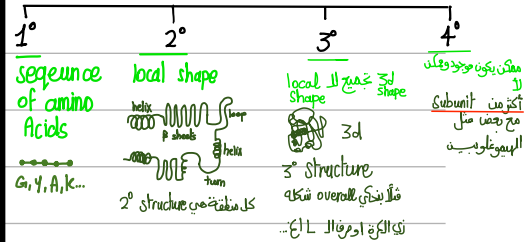 1° 2° 3° 4°
seqeunce
of amino
Acids
G, Y, A, K...
local shape
helix
β sheets
loop
helix
turn
2° structure كل منطقة هي
3d تجميع لا local
shape
shape
3d
3° structure
شكله overall
زي الكرة او حرف ال L الخ...
ممكن يكون موجود وممكن
لا
أكثر من Subunit
مع بعض مثل
الهيموغلوبين